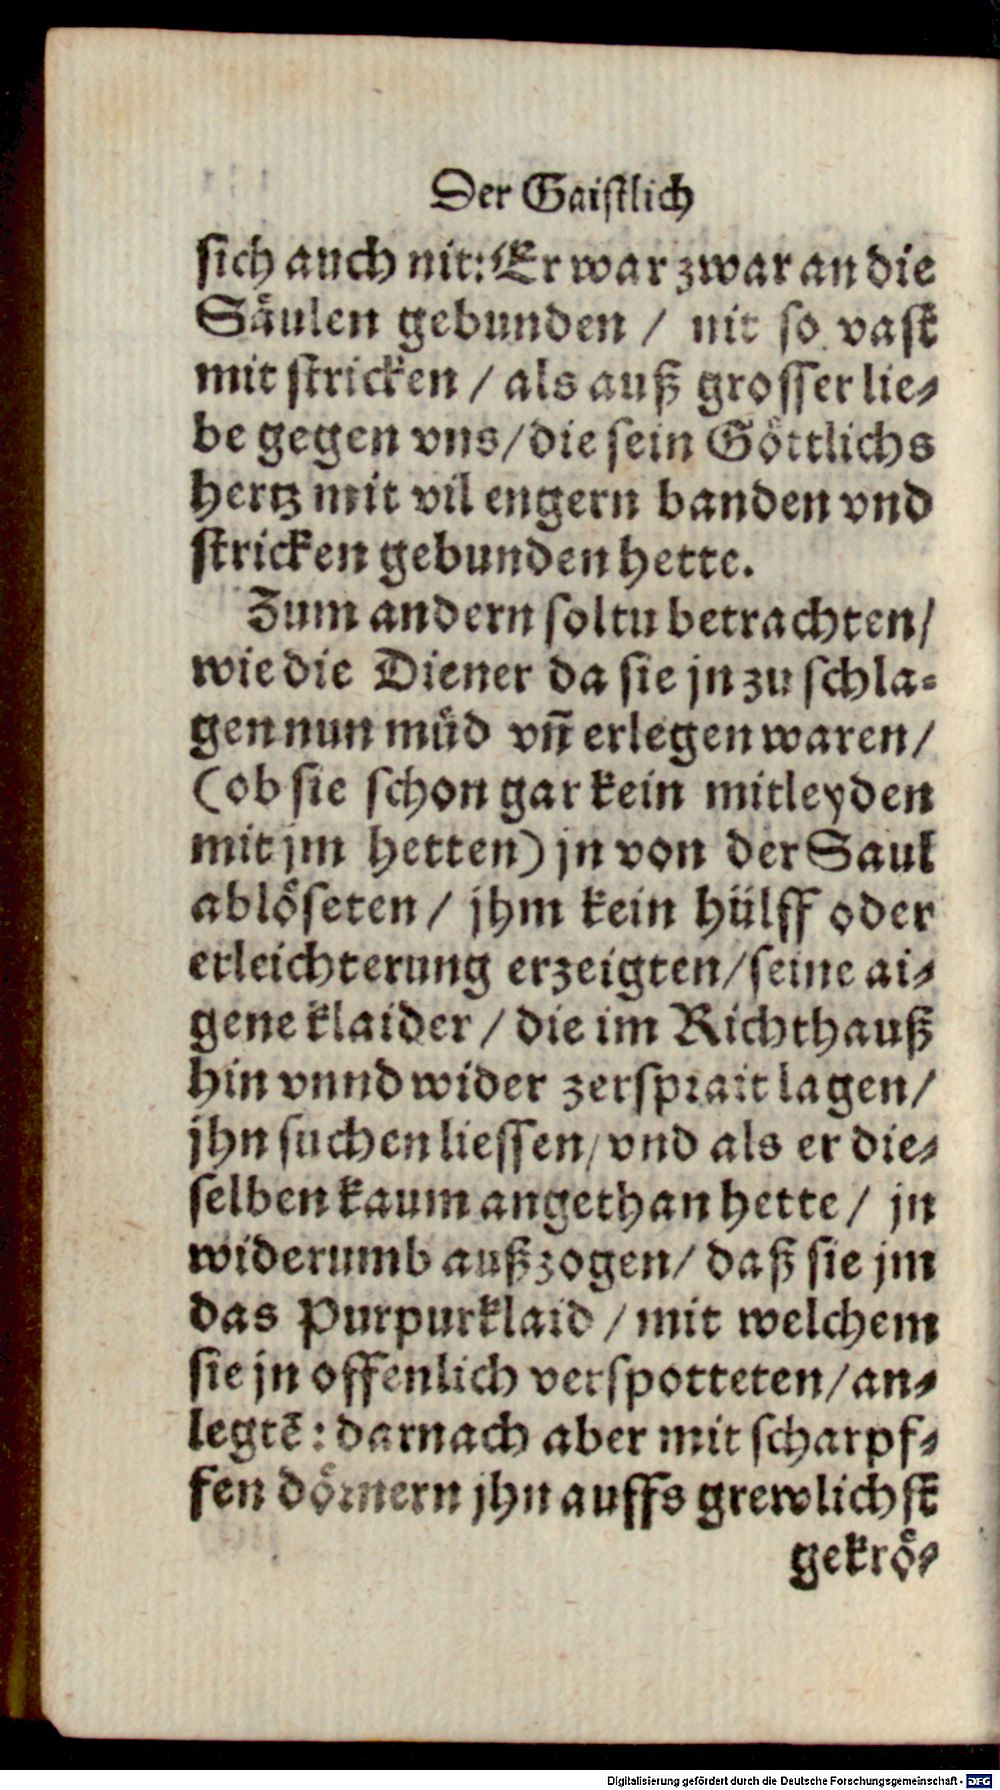 Der Gaistlich
sich auch nit: Er war zwar an die
Säulen gebunden / nit so vast
mit stricken / als auß grosser lie⸗
be gegen vns / die sein Göttlichs
hertz mit vil engern banden vnd
stricken gebunden hette.
Zum andern soltu betrachten /
wie die Diener da sie jn zu schla⸗
gen nun müd vñ erlegen waren /
(ob sie schon gar kein mitleyden
mit jm hetten) jn von der Saul
ablöseten / jhm kein hülff oder
erleichterung erzeigten / seine ai⸗
gene klaider / die im Richthauß
hin vnnd wider zersprait lagen /
jhn suchen liessen / vnd als er die⸗
selben kaum angethan hette / jn
widerumb außzogen / daß sie jm
das Purpurklaid / mit welchem
sie jn offenlich verspotteten / an⸗
legtē: darnach aber mit scharpf⸗
fen dörnern jhn auffs grewlichst
gekrö⸗
Digitalisierung gefördert durch die Deutsche Forschungsgemeinschaft - DFG